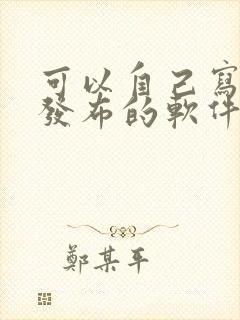 可以自己寫
發布的軟件
鄭某平